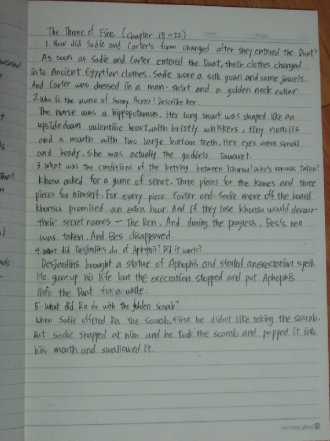 The Throne of Fire (Chapter 18-22)
1. How did Sadie and Carter's form changed after they entered the Duat?
As soon as Sadie and Carter entered the Duat, their clothes changed
into Ancient Egyptian clothes. Sadie wore a silk gown and some jewels.
And Carter was dressed in a man-skirt and a golden neck collar
2. Who is the nurse of Sunny Acres? Describe her.
The nurse was a hippopotamus. Her long snout was shaped like an
upside down valentine heart, with bristly whiskers, tiny nostrils
and a mouth with two large bottom teeth. Her eyes were small
and beady. She was actually the goddess Tawaret.
3. What was the conditions of the betting between Khonsu? Who's nerenous taken?
Khonsu asked for a game of senet. Three pieces for the Kanes and three
pieces for himself. For every piece, Carter and Sadie move off the board,
Khonsu promised an extra hour. And if they lose Khonsu would devour
their secret names - The Ren. And during the progress, Bes's ren
was taken. And Bes disappeared.
4. What did Desjardins do of Aphophis? Did it work?
Desjardins brought a statue of Aphophis and started an execration spell.
He gave up his life but the execration stopped and put Aphophis
into the Duat for a while.
5. What did Ra do with the golden scarab?
When Sadie offered Ra the scarab, first he didn't like taking the scarab.
But Sadie snapped at him and he took the scarab and popped it into
his mouth and swallowed it.
morning glory